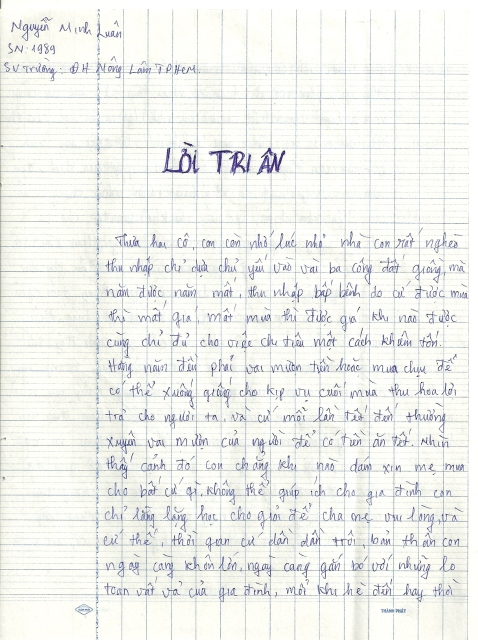 Nguyễn Minh Luân
SN: 1989
SV trường: ĐH Nông Lâm TPHCM.
LỜI TRI ÂN
Thưa hai cô, con còn nhớ lúc nhỏ nhà con rất nghèo
thu nhập chỉ dựa chủ yếu vào vài ba công đất giồng, mà
năm được năm mất, thu nhập bấp bênh do cứ được mùa
thì mất giá, mất mùa thì được giá khi nào được
cũng chỉ đủ cho việc chi tiêu một cách khiêm tốn.
Hằng năm đều phải vay mượn tiền hoặc mua chịu để
có thể xuống giống cho kịp vụ cuối mùa thu hoa lợi
trả cho người ta, và cứ mỗi lần tết đến thường
xuyên vay mượn của người để có tiền ăn tết. Nhìn
thấy cảnh đó con chẳng khi nào dám xin mẹ mua
cho bất cứ gì, không thể giúp ích cho gia đình con
chỉ lẳng lặng học cho giỏi để cha mẹ vui lòng, và
cứ thế, thời gian cứ dần dần trôi, bản thân con
ngày càng khôn lớn, ngày càng gắn bó với những lo
toan vất vả của gia đình, mỗi khi hè đến hay thời
THÀNH PHÁT